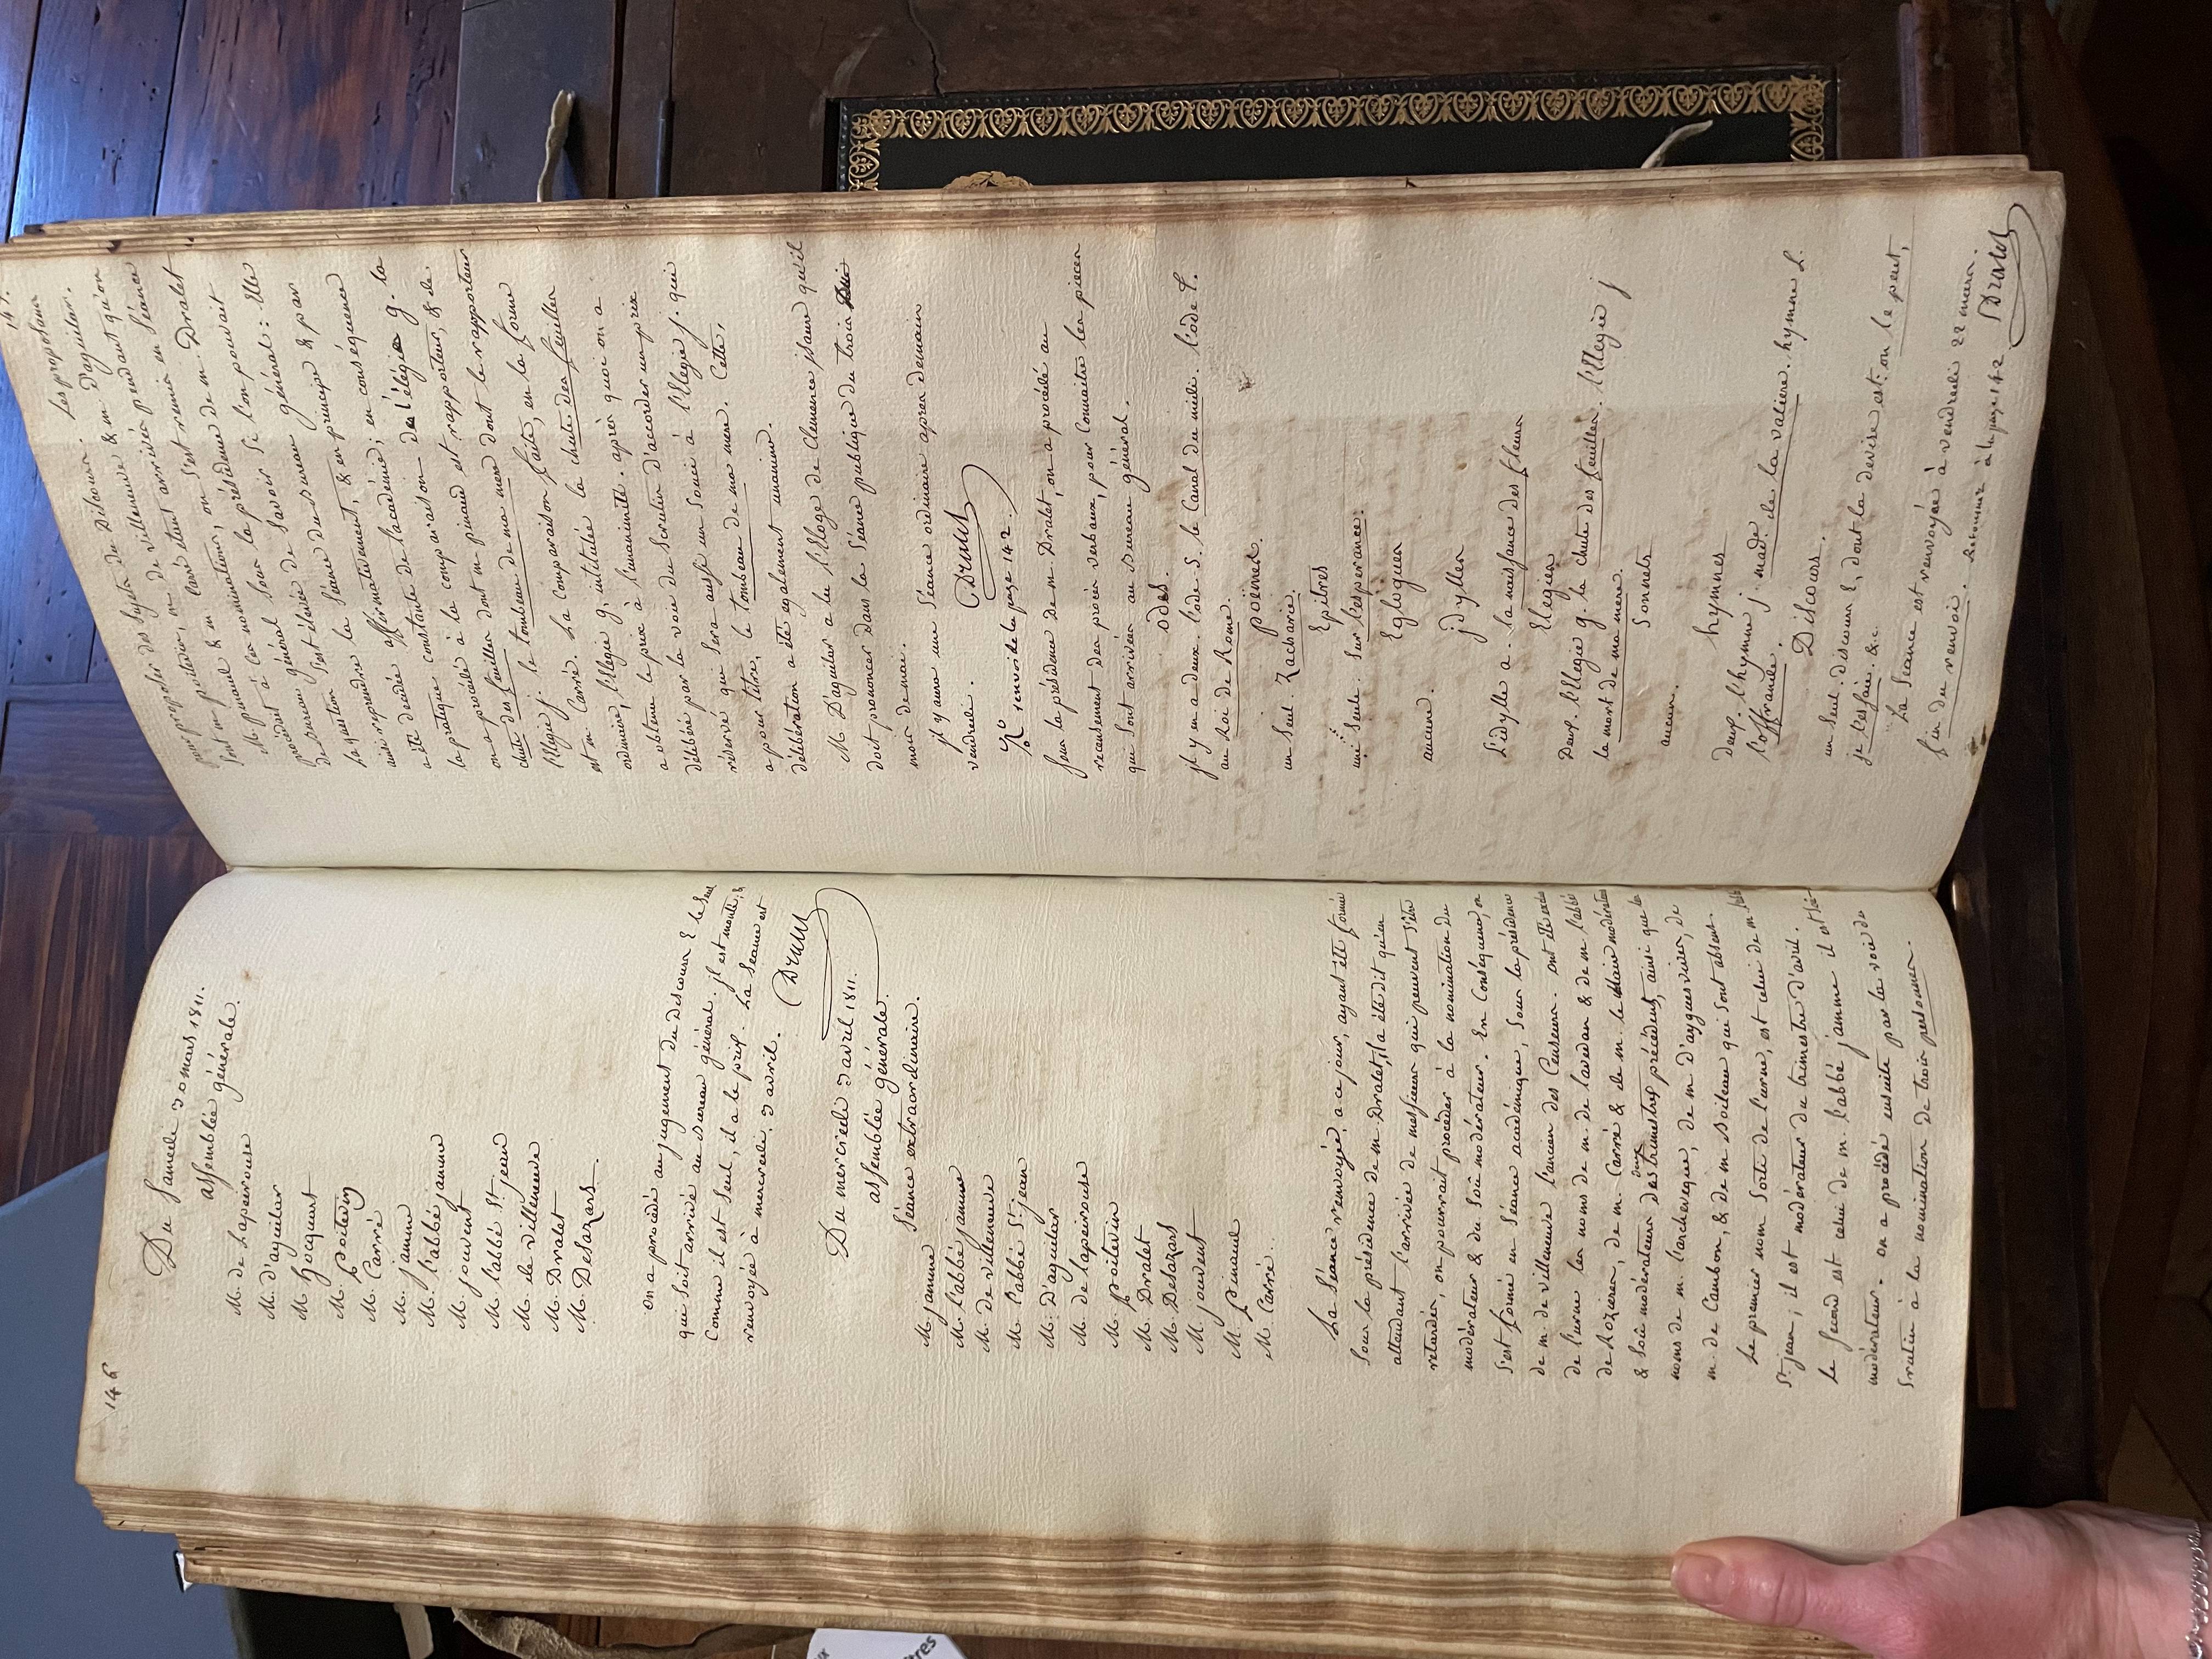 146
Du Samedi 30 mars 1811.
assemblée générale.
M. de Lapeirouse
M. D'aguilar
M. hocquart
M. Poitevin
M. Carré
M. jamme
M. l'abbé jamme
M. jouvent
M. l'abbé St. jean
M. de Villeneuve
M. Dralet
M. Desazars.
on a procédé au jugement du discours E le seul
qui soit arrivé au bureau général. il est
Comme il est seul, il a le prix. La Séance est
renvoyée à mercredi 3 avril. Dralet
Du mercredi 3 avril 1811.
assemblée générale.
Séance extraordinaire.
M. jamme
M. l'abbé jamme
M. de villeneuve
M. l'abbé St. jean
M. D'aguilar
M. de lapeirouse
M. Poitevin
M. Dralet
M. Desazars
M. jouvent
M. Pinaud
M. Carré.
La Séance renvoyée à ce jour, ayant été formée
sous la présidence de m. Dralet, il a été dit qu'en
attendant l'arrivée de messieurs qui peuvent s'être
retardés, on pourrait procéder à la nomination du
modérateur & du Soû modérateur. En Conséquence, on
s'est formé en Séance académique, sous la présidence
de m. de villeneuve l'ancien des Censeurs. ont été
de l'urne les noms de m. de lavedan & de m. l'abbé
de Rozieres, de m. Carré & de m. leblanc modérateur
& Soû modérateur des deux trimestres précédents, ainsi que les
noms de m. l'archeveque, de m. D'ayguesvives, de
m. de Cambon, & de m. Boileau qui sont absens.
Le premier nom Sorti de l'urne, est celui de m. l'abbé
St. jean; il est modérateur du trimestre d'avril.
Le Second est celui de m. l'abbé jamme il est Soû-
modérateur. on a procédé ensuite par la voie du
Scrutin à la nomination de trois personnes
147.
pour proposer des Sujets du Discours. Les proposans
Sont m. poitevin, m. de villeneuve & m. D'aguilar.
M. pinaud & m. Carré étant arrivés pendant qu'on
procédait à ces nominations, on s'est remis en Séance
de bureau général sous la présidence de m. Dralet
La question s'est élevée de Savoir Si l'on pouvait
ainsi reprendre la Séance du bureau général: Elle
a été décidée affirmativement, & en principe & par
la pratique constante de l'académie; en conséquence
on a procédé à la comparaison de l'élégie g. la
chute des feuilles dont m. pinaud est rapporteur, & de
l'Elegie j. le tombeau de ma mere dont le rapporteur
est m. Carré. La Comparaison faite, en la forme
ordinaire, l'Elegie g, intitulée la chute des feuilles
a obtenu le prix à l'unanimité. après quoi on a
délibéré par la voie du Scrutin d'accorder un prix
réservé qui Sera aussi un Souci à l'Elegie j. qui
a pour titre, le tombeau de ma mere. Cette,
délibération a été également unanime.
M. D'aguilar a lu l'Eloge de Clemence isaure qu'il
doit prononcer dans la Séance publique du trois
mois de mai.
il y aura une Séance ordinaire apres demain
vendredi. Dralet
Xo renvoi de la page 142.
Sous la présidence de m. Dralet, on a procédé au
recensement des procès verbaux, pour Connaitre les pieces
qui Sont arrivées au bureau général.
odes.
il y en a deux. l'ode S. le Canal du midi. l'ode P.
au Roi de Rome.
poëmes.
un Seul. Zacharie.
Epitres
une Seule. Sur l'esperance.
Eglogues
aucune.
jdylles
L'idylle a. la naissance des fleurs
Elegies
Deux. l'Elegie g. la chute des feuilles. l'Elegie j
la mort de ma mere.
Sonnets
aucun.
hymnes
Deux. l'hymne j. made. de la valiere. hymne L.
l'offrande.
Discours.
un Seul. discours E, dont la devise est: on le peut,
je l'essaie. &c.
La Séance est renvoyée à vendredi 22 mars.
fin du renvoi. Retourner à la page 142 Dralet